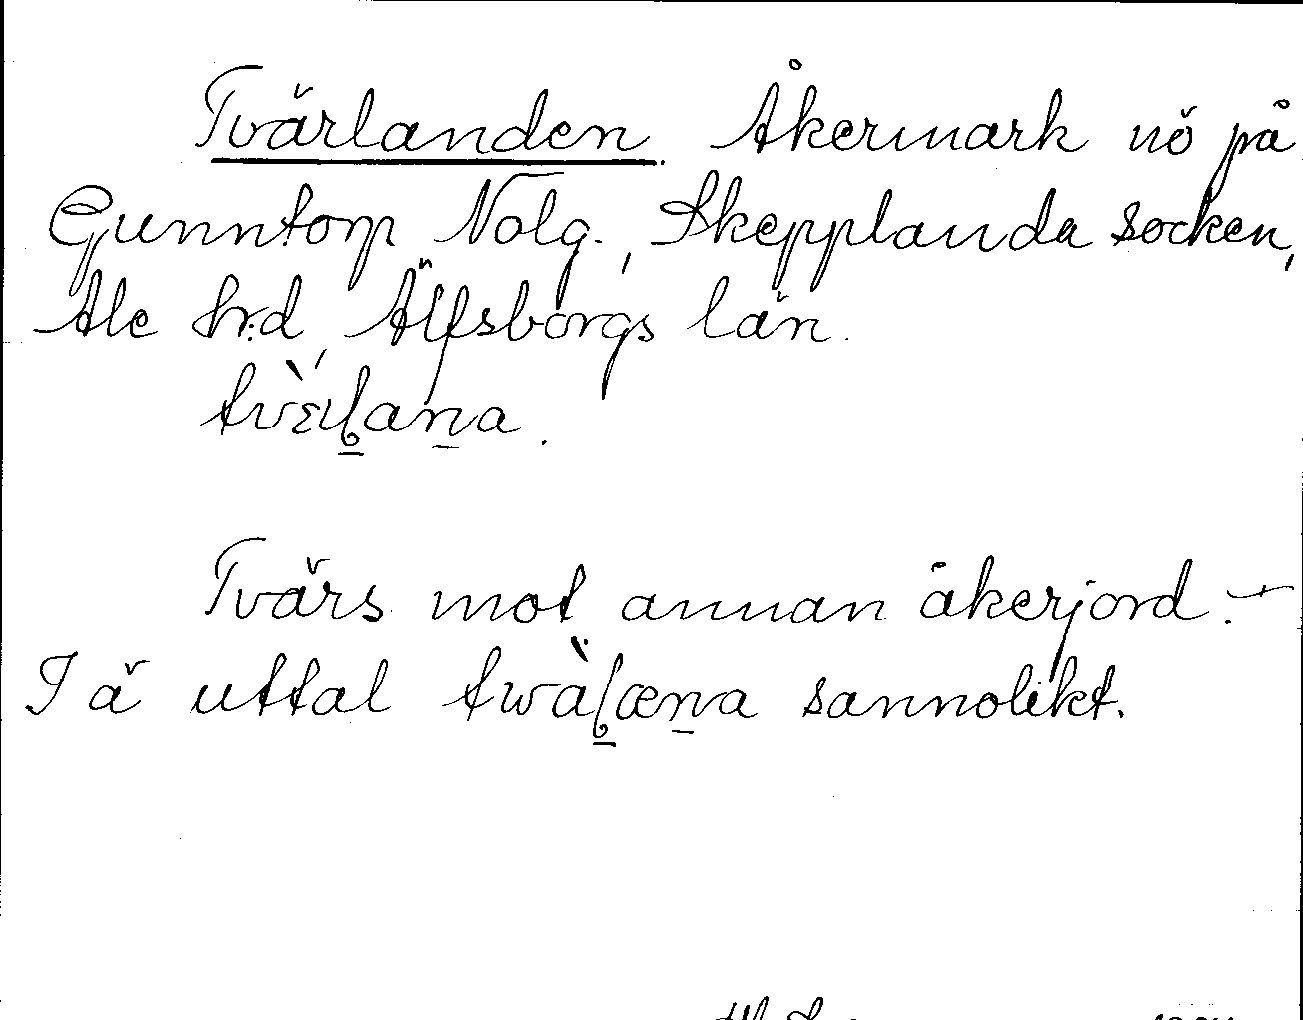 Tvärlanden. Åkermark nö på
Gunntorp Nolg., Skepplanda socken,
Ale h:d, Älfsborgs län.
Tvärs mot annan åkerjord. —
I ä uttal sannolikt.